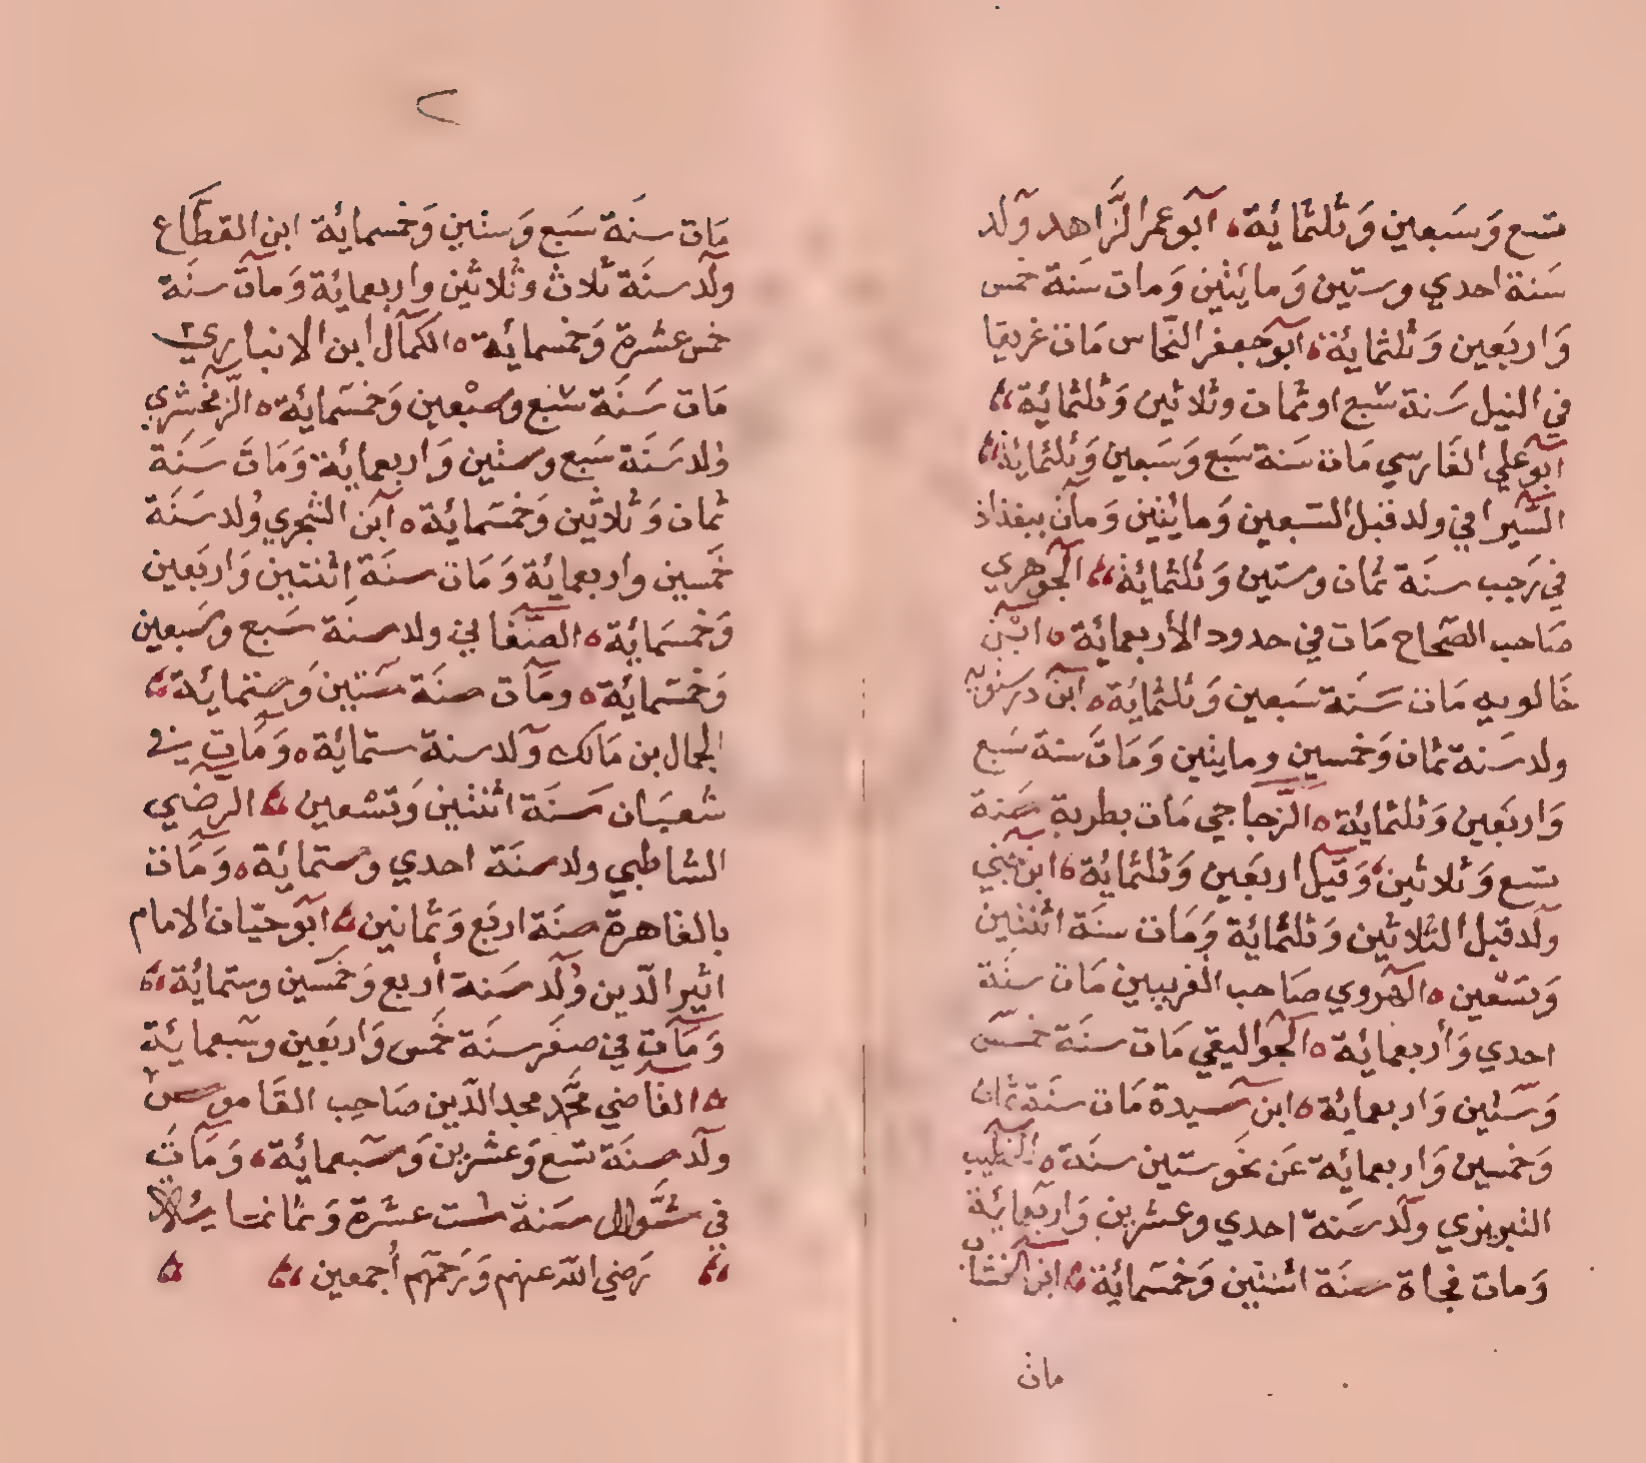 تسع وَسَبعين وَثلثمائة، آبو عمر الزَّاهد وَلد
سَنة احدي وستين وَمايَتين وَمات سَنة خمس
وَاربَعين وَثلثماية آبو جعفر النحاس مَات غريقا
في النيل سَنة سَبع او ثمان وثلاثين وَثلثمائة
آبو علي الفَارسي مَات سَنة سَبع وَسَبعين وَثلثماية
السّيرافي ولد قبل السَبعين وَمايتين وَمات ببغداذ
في رَجب سنَة ثمان وستين وَثلثماية الجوهري
صَاحب الصّحاح مَات في حدود الأربعمائة ابْن
خَالويه مَات سَنَة سَبعين وَثلثمائة آبن درستويه
ولد سَنة ثمان وَخمسين ومايتين وَمَات سَنة سَبع
وَاربَعين وَثلثماية الزّجاجي مَات بطرية سَنة
تسع وَثلاثين وَقيل اربَعين وَثلثمائة ابن جني
ولد قبل الثلاثين وَثلثمائة وَمَات سنَة اثنتين
وَتسْعين الهروي صَاحب الغريبين مَات سنَة
احدي وَأربعمائة الجوَاليقي مَات سنَة خمس
وَستين وَاربعمائة ابن سيدة مَات سنَة ثمان
وَخمسين وَاربعمائة عَن نحو ستين سنَة الخطيب
التبريزي ولد سَنة احدي وعشرين وَاربعمائة
وَمات فجاة سنَة اثنتين وَخمسَمائة ابن الخشاب
مات
مَات سنَة سَبع وَستين وَخمسماية ابن القطَّاع
ولد سنَة ثلاث وثلاثين واربعمائة وَمات سنَة
خمس عشرة وَخمسمائة الكمال ابن الانباري
مَات سَنَة سَبع وسَبْعين وَخمسَمائة الزمخشري
وُلد سَنَة سَبع وستين وَاربعماية وَمَاتَ سَنَة
ثمان وَثلاثين وَخمسَمائة ابن الشجري وُلد سَنَة
خَمسين واربعماية وَمَات سنَة اثنتين وَاربَعين
وَخمسَماية الصّغاني ولد سنَة سَبع وسَبعين
وَخمسَماية ومَات سنَة سَتين وَستمائة
الجمال بن مَالك وَلد سنة ستمائة وَمَات في
شعبَان سَنَة اثنتين وَتسْعين الرضي
الشاطبي ولد سنَة احدي وستمائة وَمَات
بالقاهرة سنَة اربَع وَثمانين ابَو حيّان الامام
اثير الدّين وُلد سَنة أربع وَخمسَين وستمائة
وَمَات في صفَر سنَة خَمس وَاربَعين وسَبعمائة
القاضي محَّد مجد الدّين صَاحِب القَاموس
ولد سنَة تسع وَعشرين وَسَبعمائة، وَمَاتَ
في شَوّال سَنة ست عشَرة وَثمَانمَاية
رَضي الله عنهم وَرَحمَهم أجمعين